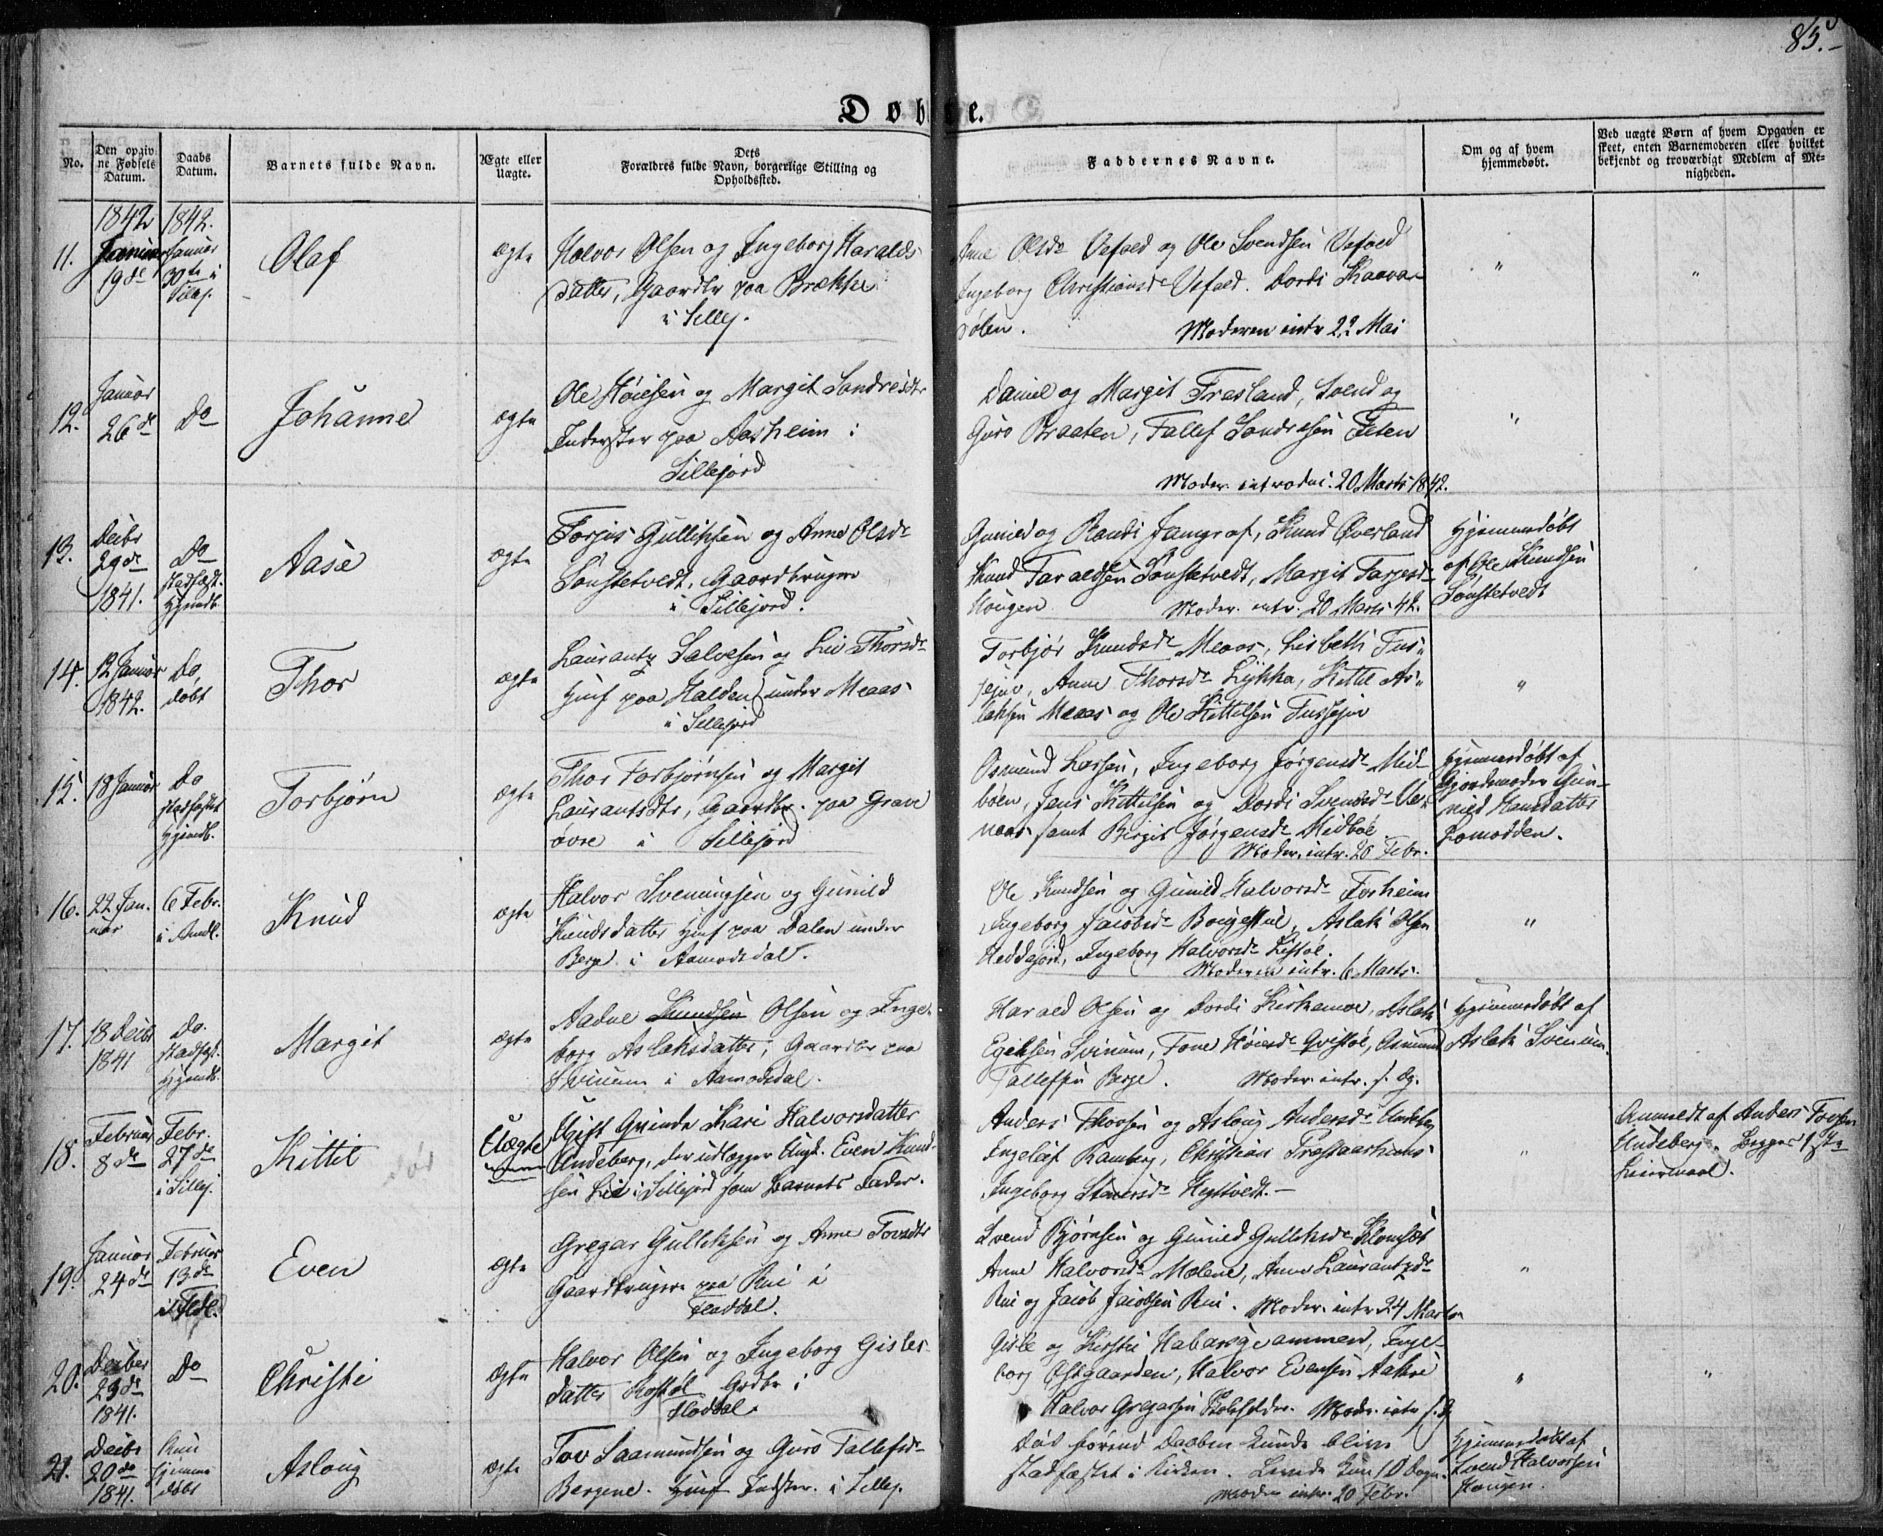 85.
Døbte.
No.
Den opgiv-
ne Fødsels
Datum.
Daabs
Datum.
Barnets fulde Navn.
Ægte eller
Uægte.
Dets
Forældres fulde Navn, borgerlige Stilling og
Opholdssted.
Faddernes Navne.
Om og af hvem
hjemmedøbt.
Ved uægte Børn af hvem Opgaven er
skeet, enten Barnemoderen eller hvilket
bekjendt og troværdigt Medlem af Me-
nigheden.
11.
1842
Januar
19de
1842.
Januar
30te i
Sillej.
Olaf
ægte
Halvor Olsen og Ingeborg Haralds-
datter, Gaardbr paa Brække
i Sillej.
Anne Olsdr Vefald og Ole Svendsen Vefald
Ingeborg Christiansdr Vefald. Dordi Kaava-
dølen.
Moderen intr 22 Mai
"
"
12.
Januar
26de
Do
Johanne
ægte
Ole Høiesen og Margit Sondresdtr
Inderster paa Aasheim i
Sillejord
Daniel og Margit Fresland, Svend og
Guro Braaten, Tallef Sondresen Teten
Moder. introduc. 20 Marts 1842.
"
13.
Decbr
29de
1841.
Do
stadfæst.
Hjemdb.
Aase
ægte
Torjus Gulliksen og Anne Olsdr
Sonstetvedt. Gaardbrugere
i Sillejord.
Gunild og Randi Jamgraf, Knud Øverland
Knud Taraldsen Sonstetvedt, Margit Tarjesdr
Haugen
Moder. intr. 20 Marts 42.
Hjemmedøbt
af Ole Knudsen
Sonstetvedt
14.
12 Januar
1842.
Do
døbt
Thor
ægte
Laurantz Salvesen og Liv Thorsdr
Huusf paa Halden under Meaas
i Sillejord
Torbjør Knudsdr Meaas, Lisbeth Fus-
sejuv, Anne Thorsdr Lykka, Kittil As-
laksen Meaas og Ole Kittelsen Fussejuv
"
15.
18 Januar
Do
stadfæstet
Hjemdb.
Torbjørn
ægte
Thor Torbjørnsen og Margit
Laurantsdtr, Gaardbr. paa Grave
øvre i Sillejord
Osmund Larsen, Ingeborg Jørgensdr Mid-
bøen, Jens Kittelsen og Dordi Svendsdr Ver-
naas samt Bergit Jørgensdr Midbøe.
Moder. intr. 20 Febr.
Hjemmedøbt af
Gjordemoder Gun-
nild Hansdatter
Lomodden.
16.
22 Jan-
uar
6 Febr.
i Amdl.
Knud
ægte
Halvor Sveningsen og Gunild
Knudsdatter Huusf paa Dalen under
Berge i Aamodsdal.
Ole Knudsen og Gunild Halvorsdr Forheim
Ingeborg Jacobsdr Bougestue, Aslak Olsen
Heddejord, Ingeborg Halvorsdr Listøl.
Moderen intr. 6 Marts.
"
17.
18 Decbr
1841
do.
stadfæst.
Hjemdb.
Margit
ægte
Aadne Knudsen Olsen og Inge-
borg Aslaksdatter, Gaardbr paa
Svinum i Aamodsdal.
Harald Olsen og Dordi Kirkamoe, Aslak
Egilsen Svinum, Tone Høiesdr Qvistøl, Osmund
Tallefsen Berge.
Moder. intr. s. Dg.
Hjemmedøbt af
Aslak Svinum.
18.
Februar
8de
Febr.
27de
i Sillej.
Kittil
Uægte
Ugift Qvinde Kari Halvorsdatter
Undeberg, der udlægger Ungk. Even Knud-
sen Lid i Sillejord som Barnets Fader.
Anders Thorsen og Aslaug Andersdr Undeberg
Ingeleif Ramberg, Christian
Ingeborg
"
Anmeldt af Anders Tovsen
Undeberg. Begges 1ste
Leiermaal.
19.
Januar
24de
Februar
13de
i Fldl.
Even
ægte
Gregar Gulliksen og Anne Tovsdtr
Gaardbrugere paa Rui i
Fladdal.
Svend Bjørnsen og Gunild Gulliksdr Klomsæt
Anne Halvorsdr Molene, Anne Laurantzdr
Rui og Jacob Jacobsen Rui.
Moder. intr 24 Marts
"
20.
Decber
23de
1841.
Do
Christi
ægte
Halvor Olsen og Ingeborg Gisles-
datter Kostøl Grdbr i
Fladdal.
Gisle og Kirstie Habarsgeammen, Inge-
borg Østgaarden, Halvor Evensen Aakre
Halvor Gregarsen
Moder. intr s. D.
"
"
21.
Decbr
20de
1841.
Kun
hjemme
døbt
Aslaug
ægte
Tov Saamundsen og Guro Tallefsdr
Bergene. Huusf Indster. i Sillej.
Død førend Daaben kunde blive
stadfæstet i Kirken. Levede kun 10 Dage.
Moder intr. 20 Febr.
Hjemmedøbt af
Svend Halvorsen
Haugen.